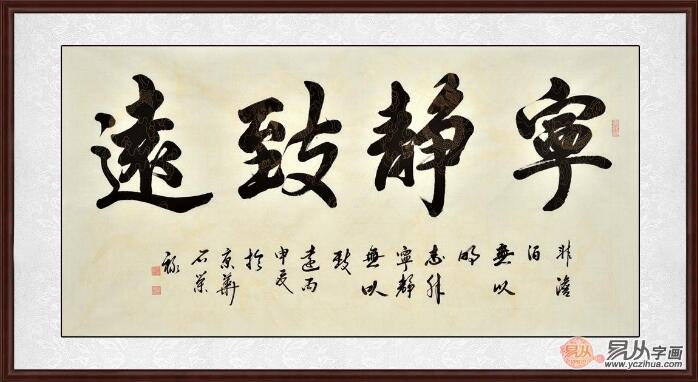 寧靜致遠
非澹
泊
無以
明
志非
寧靜
無以
致
遠丙
申夏
於
京華
石榮
禄
易从字画
www.yczihua.com